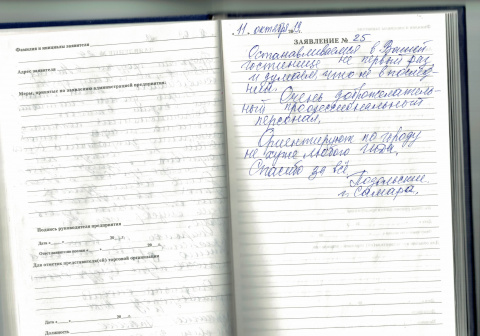 Фамилия и инициалы заявителя
Адрес заявителя
Меры, принятые по заявлению администрацией предприятия:
Подпись руководителя предприятия
Дата « » 20 г.
Для отметок представителя(ей) торговой организации
Дата « » 20 г.
Должность
11. октября
ЗАЯВЛЕНИЕ № 25
Останавливаемся в Вашей
гостинице не первый раз
и думаем, что не в послед
ний. Очень доброжелатель-
ный профессиональный
персонал.
Ориентируют по городу
не хуже любого гида.
Спасибо за всё.
г. Самара.